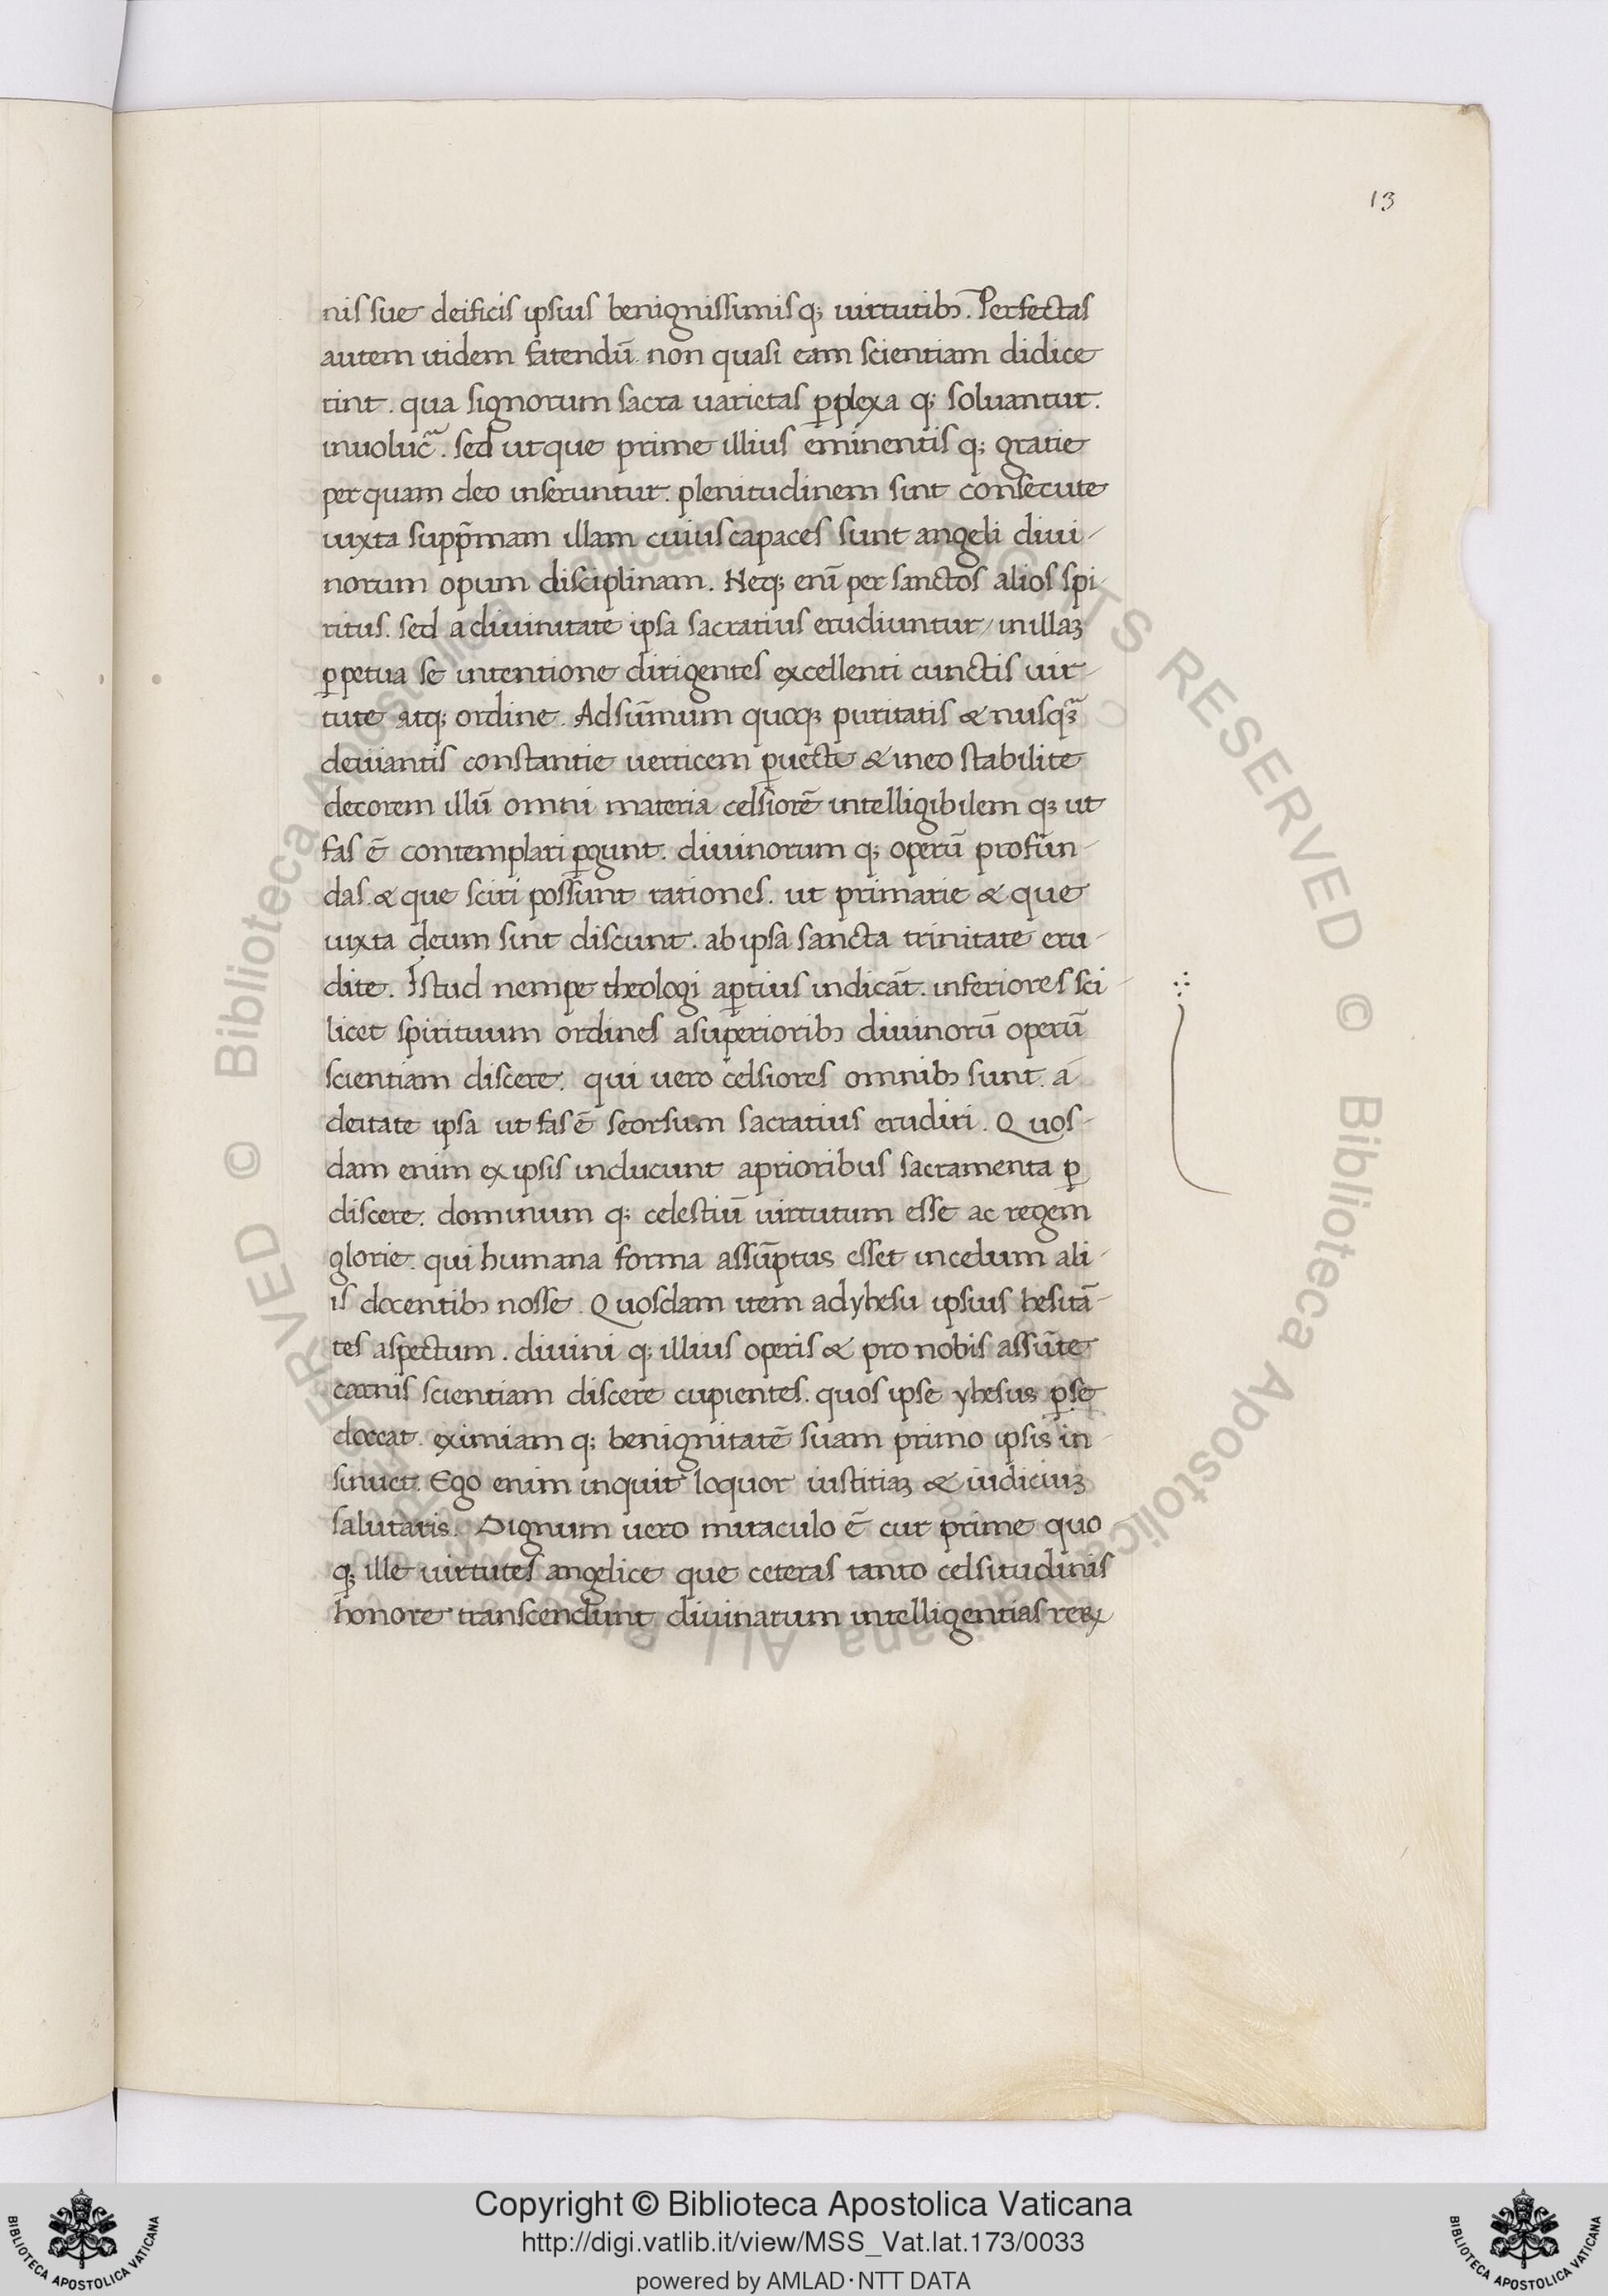 13
nis sue deificis ipsius benignissimisq; uirtutibꝫ. Perfectas
autem itidem fatendū non quasi eam scientiam didice
rint. qua signorum sacra uarietas ꝑplexa q; soluantur.
inuolucᵃ. sed ut que prime illius eminentisq; gratie
per quam deo inseruntur. plenitudinem sint consecute
iuxta supp̄mam illam cuius capaces sunt angeli diui-
norum opum disciplinam. Neq; eni᷄ per sanctos alios spi-
ritus. sed a diuinitate ipsa sacratius erudiuntur / in illaꝫ
ꝑpetua se intentione dirigentes excellenti cunctis uir-
tute atq; ordine. Ad sūmum quoqꝫ puritatis & nusqꝫ̄
deuiantis constantie uerticem ꝑuecte & in eo stabilite
decorem illū omni materia celsiorē intelligibilem qꝫ ut
fas ē contemplari ꝑgunt. diuinorum q; operū profun-
das. & que sciri possunt rationes. ut primarie & que
iuxta deum sint discunt. ab ipsa sancta trinitate eru-
dite. Istud nempe theologi aꝑtius indicāt. inferiores sci-
licet spirituum ordines a superioribꝫ diuinorū operū
scientiam discere. qui uero celsiores omnibꝫ sunt. a
deitate ipsa ut fas ē seorsum sacratius erudiri. Quos-
dam enim ex ipsis inducunt a prioribus sacramenta ꝑ
discere. dominum q; celestiū uirtutum esse ac regem
glorie. qui humana forma assūptus esset in celum ali-
is docentibꝫ nosse. Quosdam item ad yhesu ipsius hesitā-
tes aspectum. diuini q; illius operis & pro nobis assūte
carnis scientiam discere cupientes. quos ipse yhesus ꝑ se
doceat. eximiam q; benignitatē suam primo ipsis in-
sinuet. Ego enim inquit loquor iustitiaꝫ & iudiciuꝫ
salutaris. Dignum uero miraculo ē cur prime quo
qꝫ ille uirtutes angelice que ceteras tanto celsitudinis
honore transcendunt diuinarum intelligentias reꝝ
© Biblioteca Apostolica Vaticana ALL RIGHTS RESERVED
Copyright © Biblioteca Apostolica Vaticana
http://digi.vatlib.it/view/MSS_Vat.lat.173/0033
powered by AMLAD·NTT DATA
BIBLIOTECA APOSTOLICA VATICANA
BIBLIOTECA APOSTOLICA VATICANA